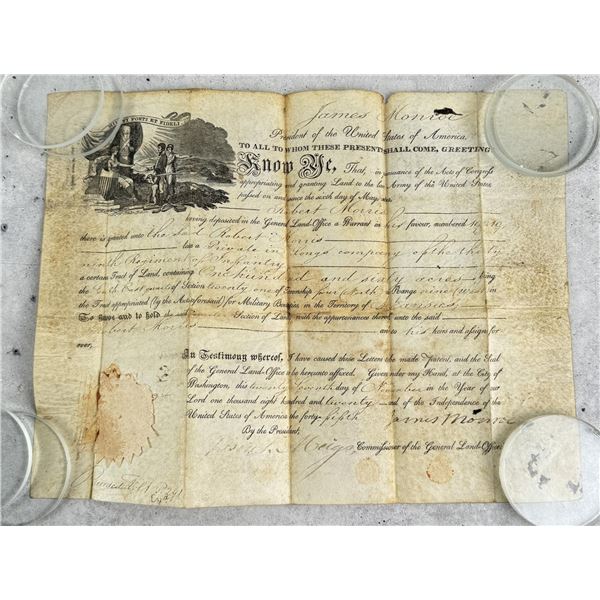 FORTI ET FIDELI
James Monroe
President of the United States of America,
TO ALL TO WHOM THESE PRESENTS SHALL COME, GREETING:
Know Ye, That, in pursuance of the Acts of Congress
appropriating and granting Land to the late Army of the United States
passed on and since the sixth day of May,
Robert Morris
having deposited in the General Land-Office a Warrant in his favour, numbered
there is granted unto the said Robert Morris
late a Private in Longs company of the thirty
ninth Regiment of Infantry
a certain Tract of Land, containing One hundred and sixty acres, being
the South East quarter of Section twenty one of Township fourteenth Range nine west in
the Tract appropriated (by the Acts aforesaid) for Military Bounties, in the Territory of Arkansas
To have and to hold the said quarter Section of Land, with the appurtenances thereof, unto the said
Robert Morris and to his heirs and assigns for
ever,
In Testimony whereof, I have caused these Letters to be made Patent, and the Seal
of the General Land-Office to be hereunto affixed. Given under my Hand, at the City of
Washington, this twenty seventh day of November in the Year of our
Lord one thousand eight hundred and twenty and of the Independence of the
United States of America the forty-fifth James Monroe
By the President,
Josiah Meigs Commissioner of the General Land-Office